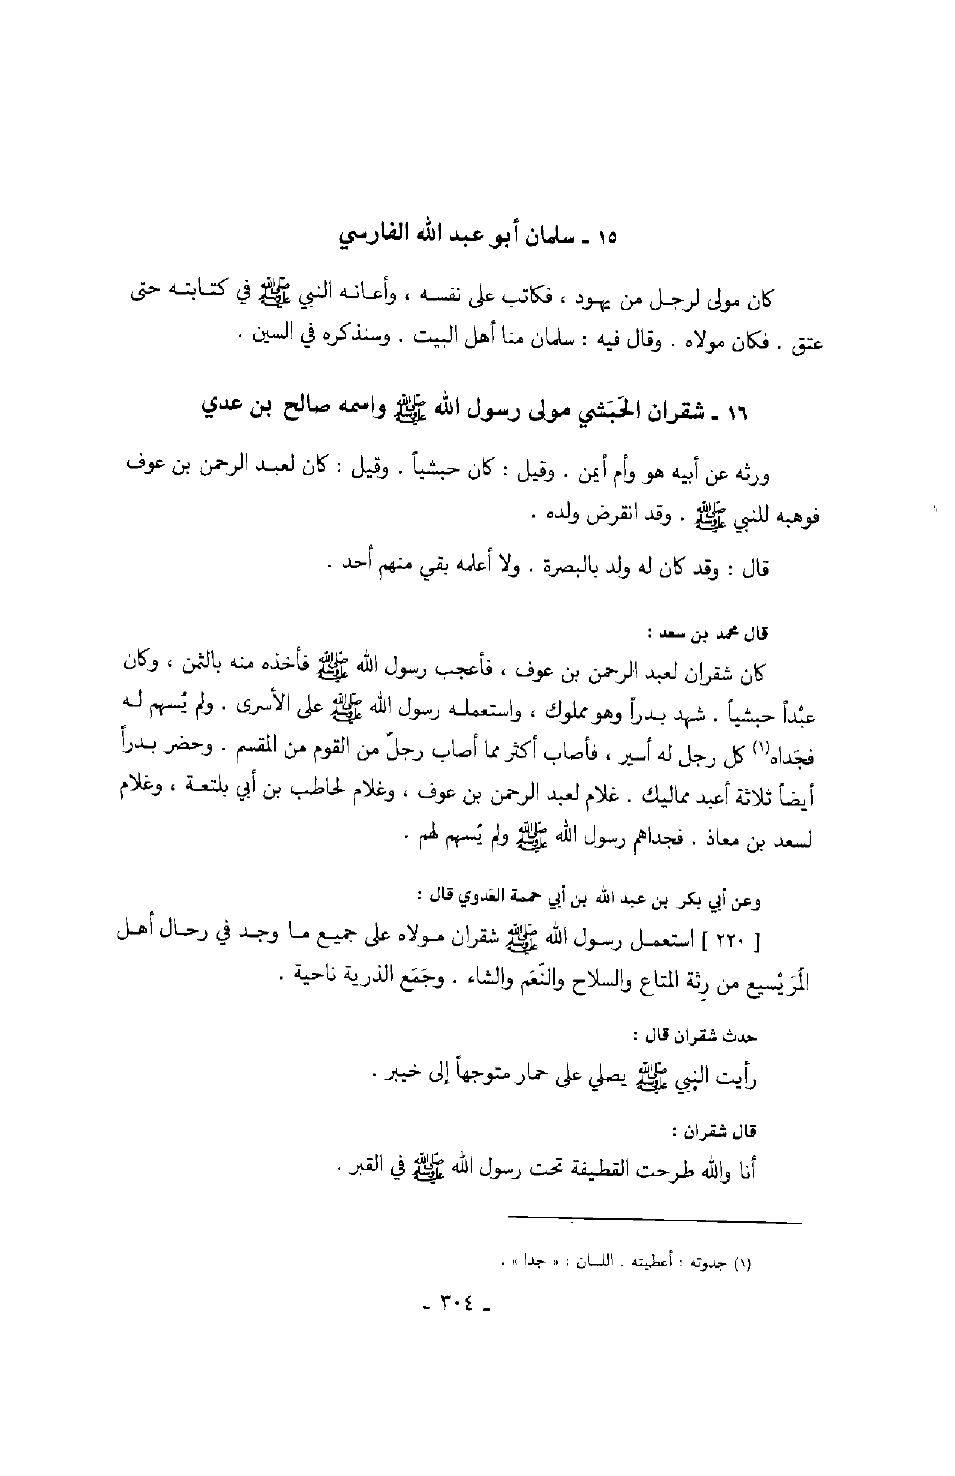 ١٥ ـ سلمان أبو عبد الله الفارسي
كان مولى لرجل من يهود ، فكاتب على نفسه ، وأعانه النبي ﷺ في كتابته حتى
عتق . فكان مولاه . وقال فيه : سلمان منا أهل البيت . وسنذكره في السين .
١٦ ـ شقران الحَبَشي مولى رسول الله ﷺ واسمه صالح بن عدي
ورثه عن أبيه هو وأم أيمن . وقيل : كان حبشياً . وقيل : كان لعبد الرحمن بن عوف
فوهبه للنبي ﷺ . وقد انقرض ولده .
قال : وقد كان له ولد بالبصرة . ولا أعلمه بقي منهم أحد .
قال محمد بن سعد :
كان شقران لعبد الرحمن بن عوف ، فأعجب رسول الله ﷺ فأخذه منه بالثمن ، وكان
عبْداً حبشياً . شهد بدراً وهو مملوك ، واستعمله رسول الله ﷺ على الأسرى . ولم يُسهم له
فجداه(١) كل رجل له أسير ، فأصاب أكثر مما أصاب رجلٌ من القوم من المقسم . وحضر بدراً
أيضاً ثلاثة أعبد مماليك . غلام لعبد الرحمن بن عوف ، وغلام لحاطب بن أبي بلتعة ، وغلام
لسعد بن معاذ . فجداهم رسول الله ﷺ ولم يُسهم لهم .
وعن أبي بكر بن عبد الله بن أبي جهمة العَدوي قال :
[ ٢٢٠ ] استعمل رسول الله ﷺ شقران مولاه على جميع ما وجد في رحال أهل
المُرَيْسيع من رِثة المتاع والسلاح والنَّعَم والشاء . وجَمَع الذرية ناحية .
حدث شقران قال :
رأيت النبي ﷺ يصلي على حمار متوجهاً إلى خيبر .
قال شقران :
أنا والله طرحت القطيفة تحت رسول الله ﷺ في القبر .
(١) جدوته : أعطيته . اللسان : « جدا » .
ـ ٣٠٤ ـ